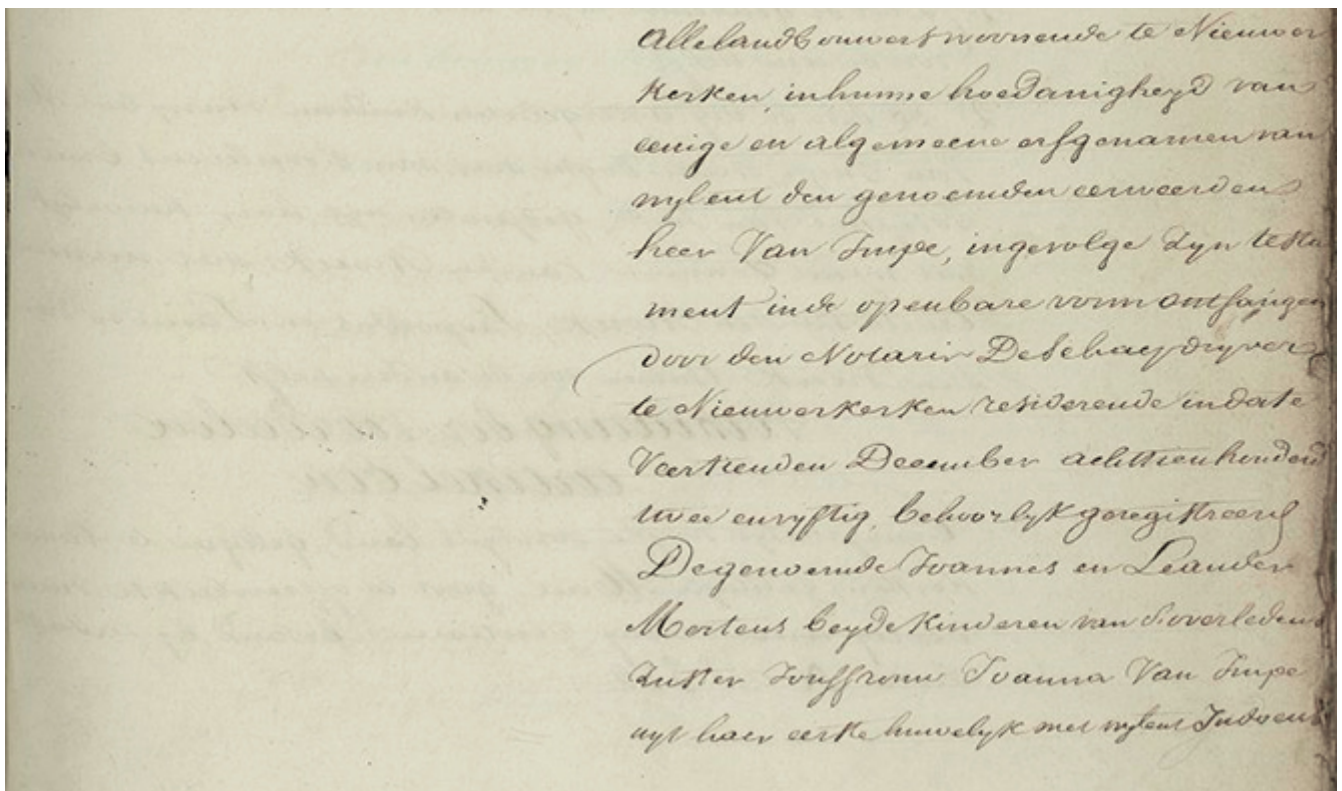 Alle landbouwers woonende te Nieuwer
kerken, in hunne hoedanigheyd van
eenige en algemeene erfgenamen van
wylent den genoemden eerweerden
heer Van Impe, ingevolge zyn testa
ment in de openbare vorm ontfangen
door den Notaris DeSchaepdryver
te Nieuwerkerken residerende in date
Veertienden December achttien honderd
twee en vyftig, behoorlyk geregistreerd
De genoemde Joannes en Leander
Mertens beyde kinderen van d'overledene
Zuster Jouffrouw Joanna Van Impe
uyt haer eerste huwelyk met wylent Judocus